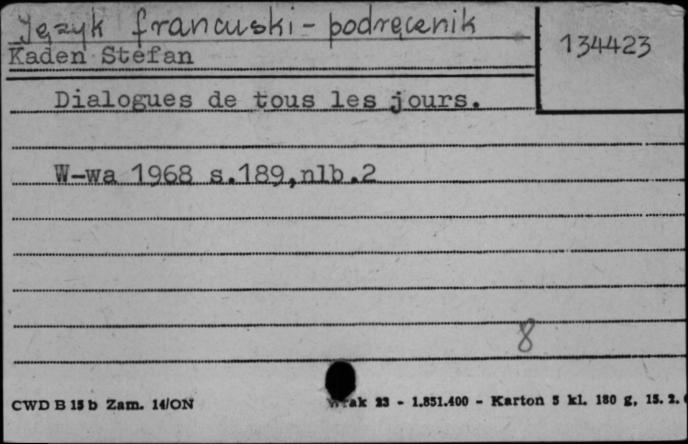 Język francuski - podręcznik
134423
Kaden Stefan
Dialogues de tous les jours.
W-wa 1968 s.189,nlb.2
8
CWD B 15 b Zam. 14/ON
23 - 1.851.400 - Karton 5 kl. 180 g, 15. 2.